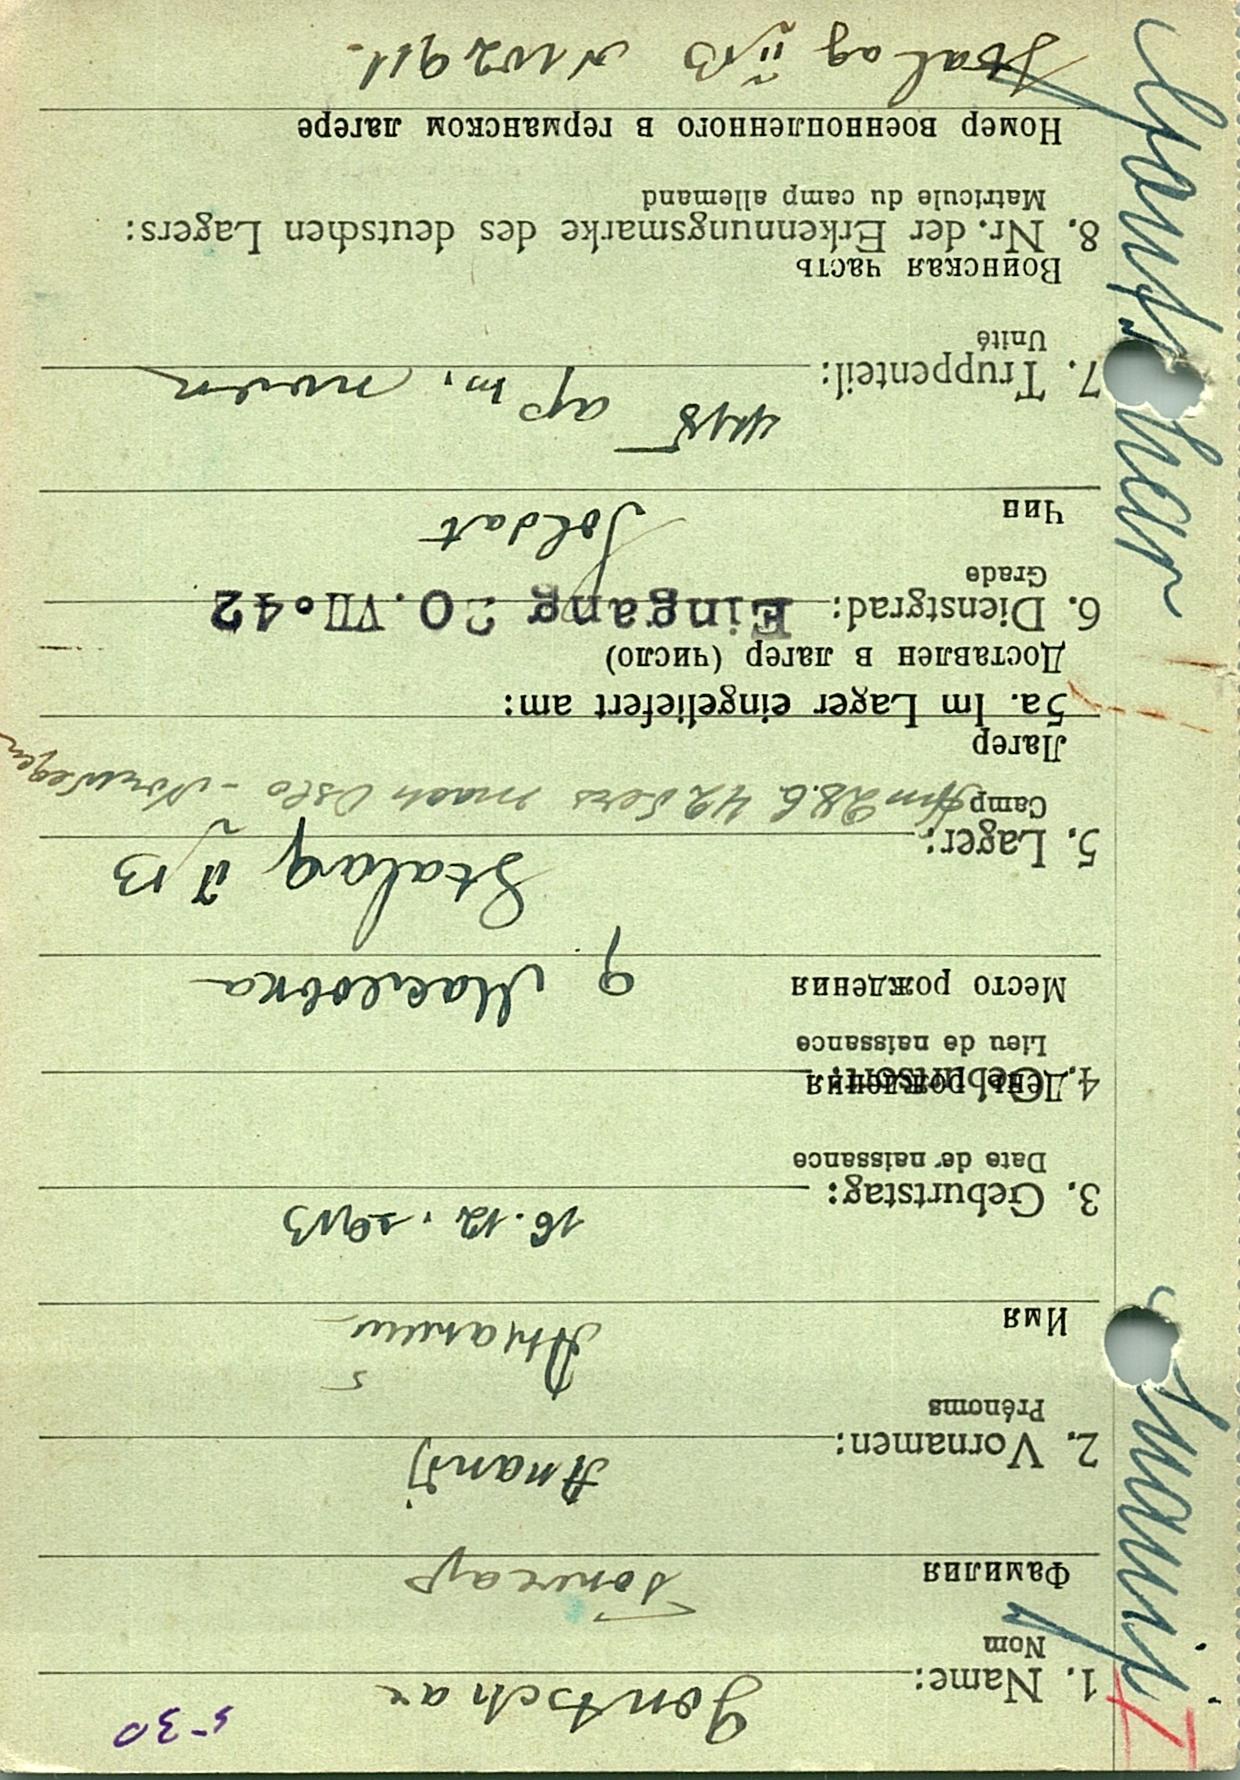 5-30
I
Gontschar Ananij
1. Name: Gontschar
Nom
Фамилия Гончар
2. Vornamen: Ananij
Prénoms
Имя Ананий
3. Geburtstag: 16.12.1913
Date de naissance
День рождения
4. Geburtsort:
Lieu de naissance
Место рождения д Масловка
5. Lager: Stalag II B
Camp Am 28.6.42 vers. nach Oslo - Norwegen
Лагер
5a. Im Lager eingeliefert am:
Доставлен в лагер (число)
Eingang 20. VII. 42
6. Dienstgrad:
Grade
Чин Soldat
7. Truppenteil:
Unité
Воинская часть
8. Nr. der Erkennungsmarke des deutschen Lagers:
Matricule du camp allemand
Номер военнопленного в германском лагере
Stalag II B